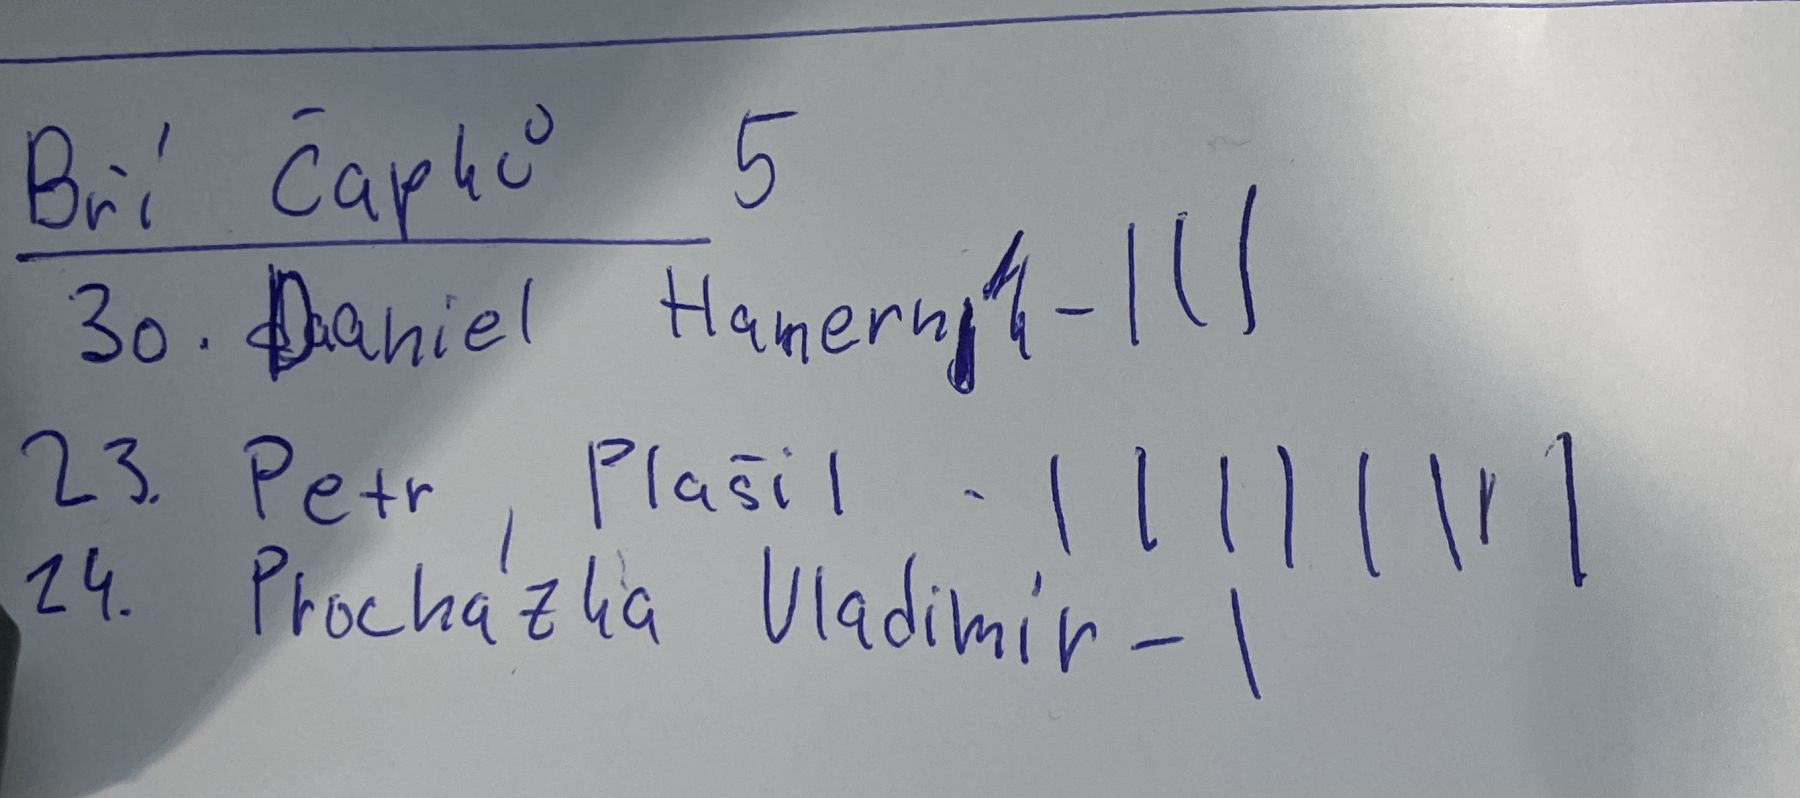 Bří Čapků 5
30. Daniel Hamerník - |||
23. Petr Plašil - ||||||||
24. Procházka Vladimír - |